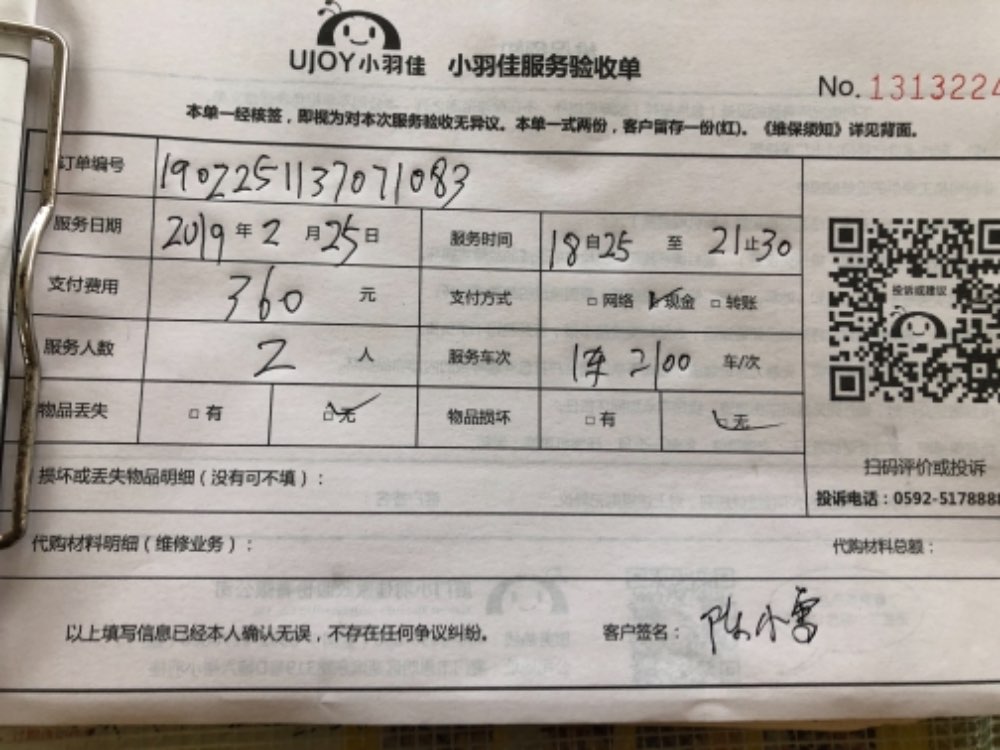 UJOY小羽佳 小羽佳服务验收单
No. 1313224
本单一经核签，即视为对本次服务验收无异议。本单一式两份，客户留存一份(红)。《维保须知》详见背面。
订单编号 1902251137071083
服务日期 2019年2月25日 服务时间 18自25至21止30
支付费用 360元 支付方式 □网络 ☑现金 □转账
服务人数 2人 服务车次 1车2100车/次
物品丢失 □有 ☑无 物品损坏 □有 ☑无
投诉或建议
扫码评价或投诉
损坏或丢失物品明细（没有可不填）：
投诉电话：0592-5178888
代购材料明细（维修业务）： 代购材料总额：
以上填写信息已经本人确认无误，不存在任何争议纠纷。 客户签名：陈小雪